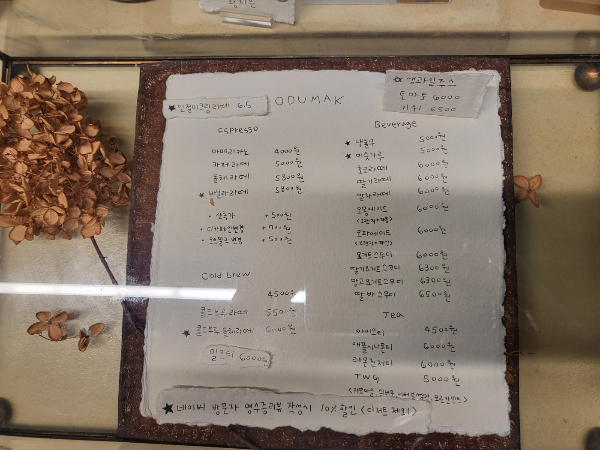 ★ 인절미크림라떼 6.5
ODUMAK
★ 생과일주스
토마토 6000
키위 6500
Espresso
아메리카노 4000원
카페라떼 5000원
돌체라떼 5800원
★ 바닐라라떼 5800원
• 샷추가 +500원
• 디카페인변경 +700원
변경 +500원
Cold brew
4500원
콜드브루라떼 5500원
★ 콜드브루 돌체라떼 6000원
밀크티 6000원
Beverage
★ 냉동구 5000원
★ 미숫가루 5000원
초코라떼 6000원
딸기라떼 6000원
말차라떼 6000원
오몽에이드 6000원
6000원
요거트스무디 6000원
딸기요거트스무디 6300원
망고요거트스무디 6300원
딸바스무디 6500원
Tea
아이스티 4500원
애플시나몬티 6000원
6000원
TWG 5000원
★ 네이버 방문자 영수증리뷰 작성시 10% 할인 <디저트 제외>